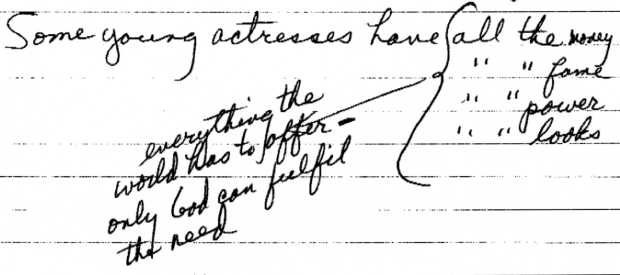 Some young actresses have { all the money
" " fame
" " power
" " looks
everything the
world has to offer -
only God can fulfil
the need